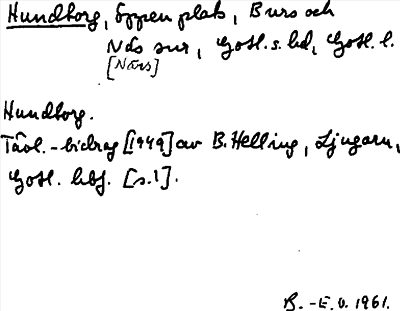 Hundborg, öppen plats, Burs och
När snr, Gotl. s. hd, Gotl. l.
[Närs]
Hundborg.
Tävl.-bidrag [1949] av B. Helling, Ljugarn,
Gotl. hbf. [s. 1].
B. -E. O. 1961.